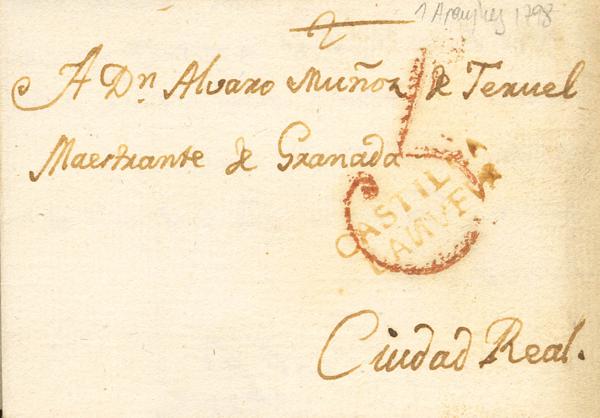 Aranjuez 1798
A Dn. Alvaro Muñoz de Teruel
Maestrante de Granada
CASTILLA
LA NUEVA
5
Ciudad Real.